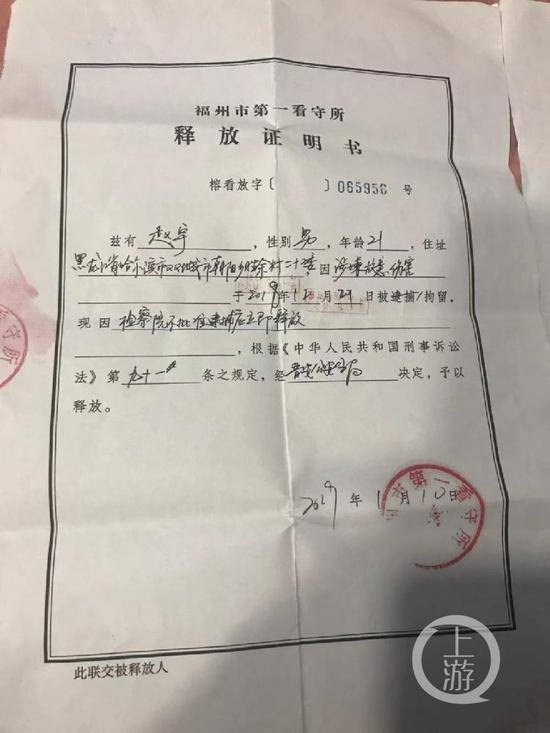 福州市第一看守所
释放证明书
榕看放字〔 〕065956 号
兹有 赵宇 ,性别 男 ,年龄 21 ,住址
黑龙江省哈尔滨市双城市朝阳乡 村二十 因 涉嫌故意伤害
于2018年12月29日被逮捕/拘留。
现因 检察院不批准逮捕应立即释放
,根据《中华人民共和国刑事诉讼
法》第 九十一 条之规定,经 晋安 分局 决定,予以
释放。
2019 年 1 月 10 日
市第一看守所
守所
此联交被释放人
上游